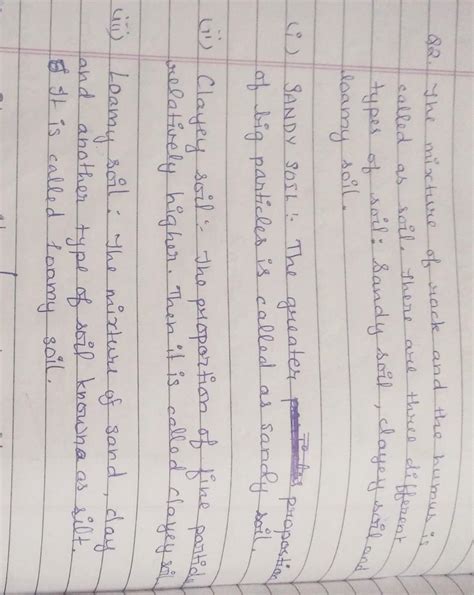 Q2. The mixture of rock and the humus is
called as soil. There are three different
types of soil: Sandy soil, clayey soil and
loamy soil.
(i) SANDY SOIL :- The greater proportion
of big particles is called as sandy soil.
(ii) Clayey soil :- The proportion of fine particle
relatively higher. Then it is called clayey soil
(iii) Loamy soil : The mixture of sand, clay
and another type of soil known as silt.
It is called loamy soil.